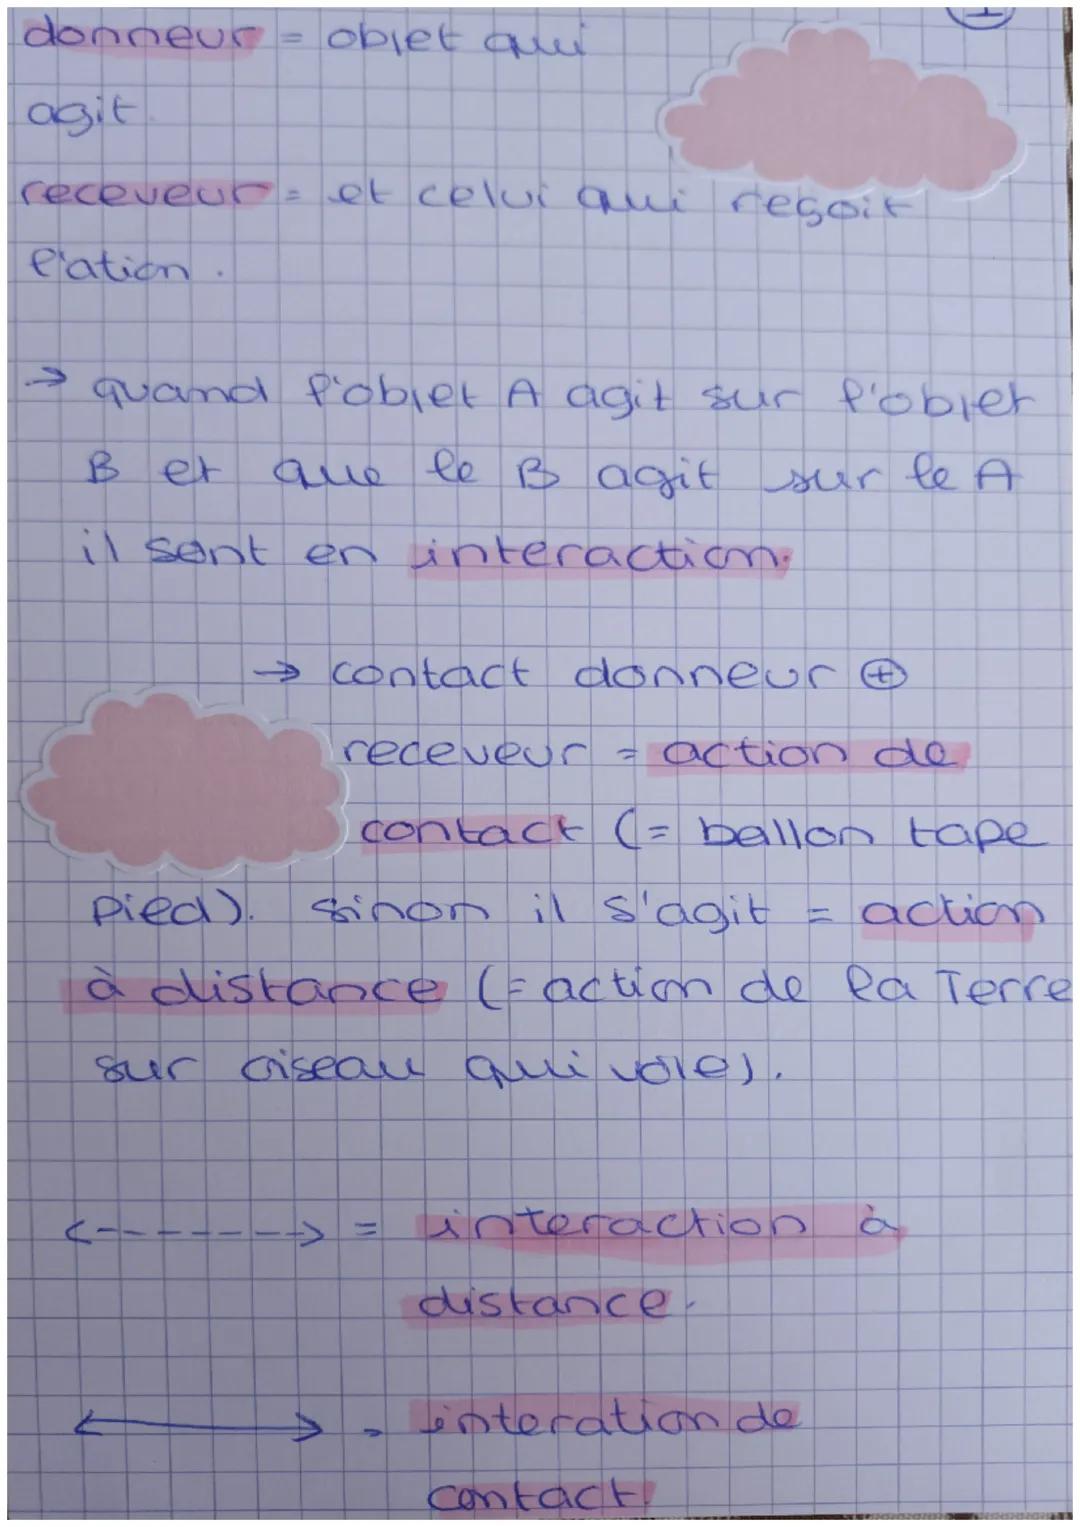 donneur = objet qui
agit.
receveur = et celui qui reçoit
l'ation.
→ quand l'objet A agit sur l'objet
B et que le B agit sur le A
il sont en interaction.
→ contact donneur ⊕
receveur = action de
contact (= ballon tape
pied). sinon il s'agit = action
à distance (= action de la Terre
sur oiseau qui vole).
<-------> = interaction à
distance.
<——> = interation de
contact.